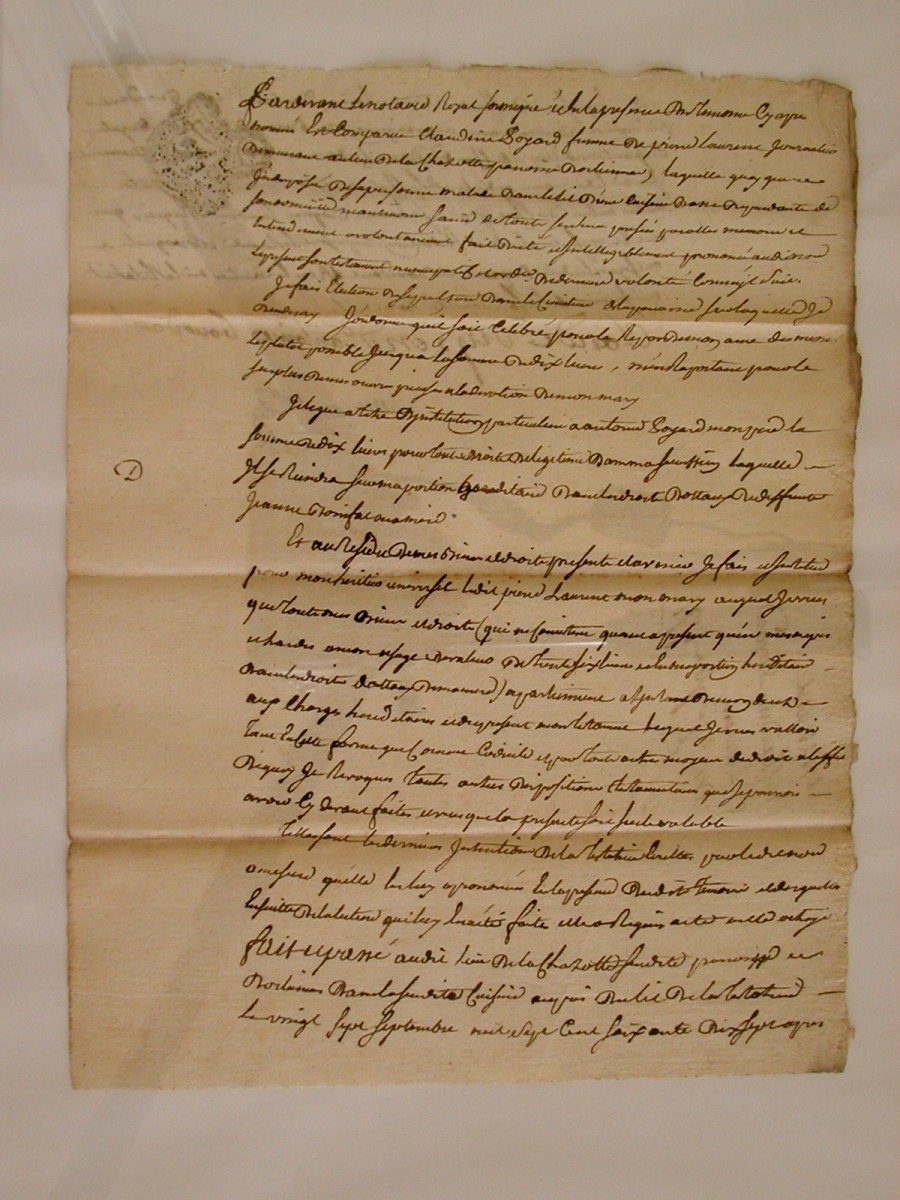 Pardevant le notaire Royal soussigné et en la presence des temoins cy apres
nommés Est Comparüe Claudine Goyard femme de pierre Laurent Journalier
Demeurant au lieu de la Chazotte parroisse laquelle quoy que
de sa personne malade dans le lit d'une cuisine Basse dependante de
saine de toute ses sens pensées parolles memoire et
Entendement a volontairement fait Dicté et Intelligiblement prononcé audit nore
le present son testament nuncupatif et ordce de derniere volonté Comme s'ensuit.
Je fais Election de sepulture dans le Cimetiere de la paroisse sur laquelle Je
J'ordonne qu'il soit Celebré pour le Repos de mon ame des messes
le plutot possible Jusqu'a la somme de dix livres, m'en Raportant pour le
surplus de mes œuvres pieuses a la devotion de mon mary
Je legue a titre d'institution particuliere a antoine Goyard mon pere la
somme de dix livres pour tout droits de legitime laquelle
Il se Tiendra sur ma portion hereditaire dans les droits dottaux de deffunte
Jeanne ma mere.
Et au Residu de mes Biens et droits presents et avenir Je fais et institue
pour mon heritier universel ledit pierre Laurent mon mary auquel Je veux
que tous mes Biens et droits (qui ne Consistent quant a present qu'en mes
et hardes a mon usage de valeur de trente six livres et en ma portion hereditaire
dans les droits dottaux de ma mere) appartiennent
aux Charges hereditaires et du present mon testament lequel Je veux valloir
tant En cette forme que Comme Codicile et par tout autre moyen de droit a l'effet
Dequoy Je Revoque toutes autres Dispositions testamentaires que Je pourrois
avoir Cy devant faites et veux que la presente soit seule valable
Telles sont les dernieres Intentions de la testatrice Ecrittes par ledit nore
a mesure qu'elle les luy a prononcé En la presence desdits temoins et desquelles
Ensuitte de la lecture qui luy En a été faite elle a Requis acte a elle octroyé
fait et passé audit lieu de la Chazotte susdite parroisse
dans la susdite Cuisine aupres du lit de la testatrice
Le vingt sept septembre mil sept Cent soixante Dix sept apres
D